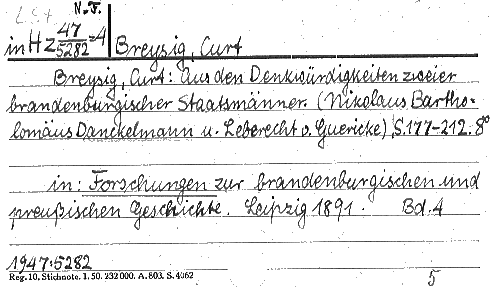 LS+ N.F.
in Hz 47/5282=4 Breysig, Curt
Breysig, Curt: Aus den Denkwürdigkeiten zweier
brandenburgischer Staatsmänner. (Nikolaus Bartho-
lomäus Danckelmann u. Leberecht v. Guericke) S. 177-212. 8°
in: Forschungen zur brandenburgischen und
preußischen Geschichte. Leipzig 1891. Bd. 4
1947:5282
Reg. 10, Stichnote. 1. 50. 232000. A. 803. S. 4062
5